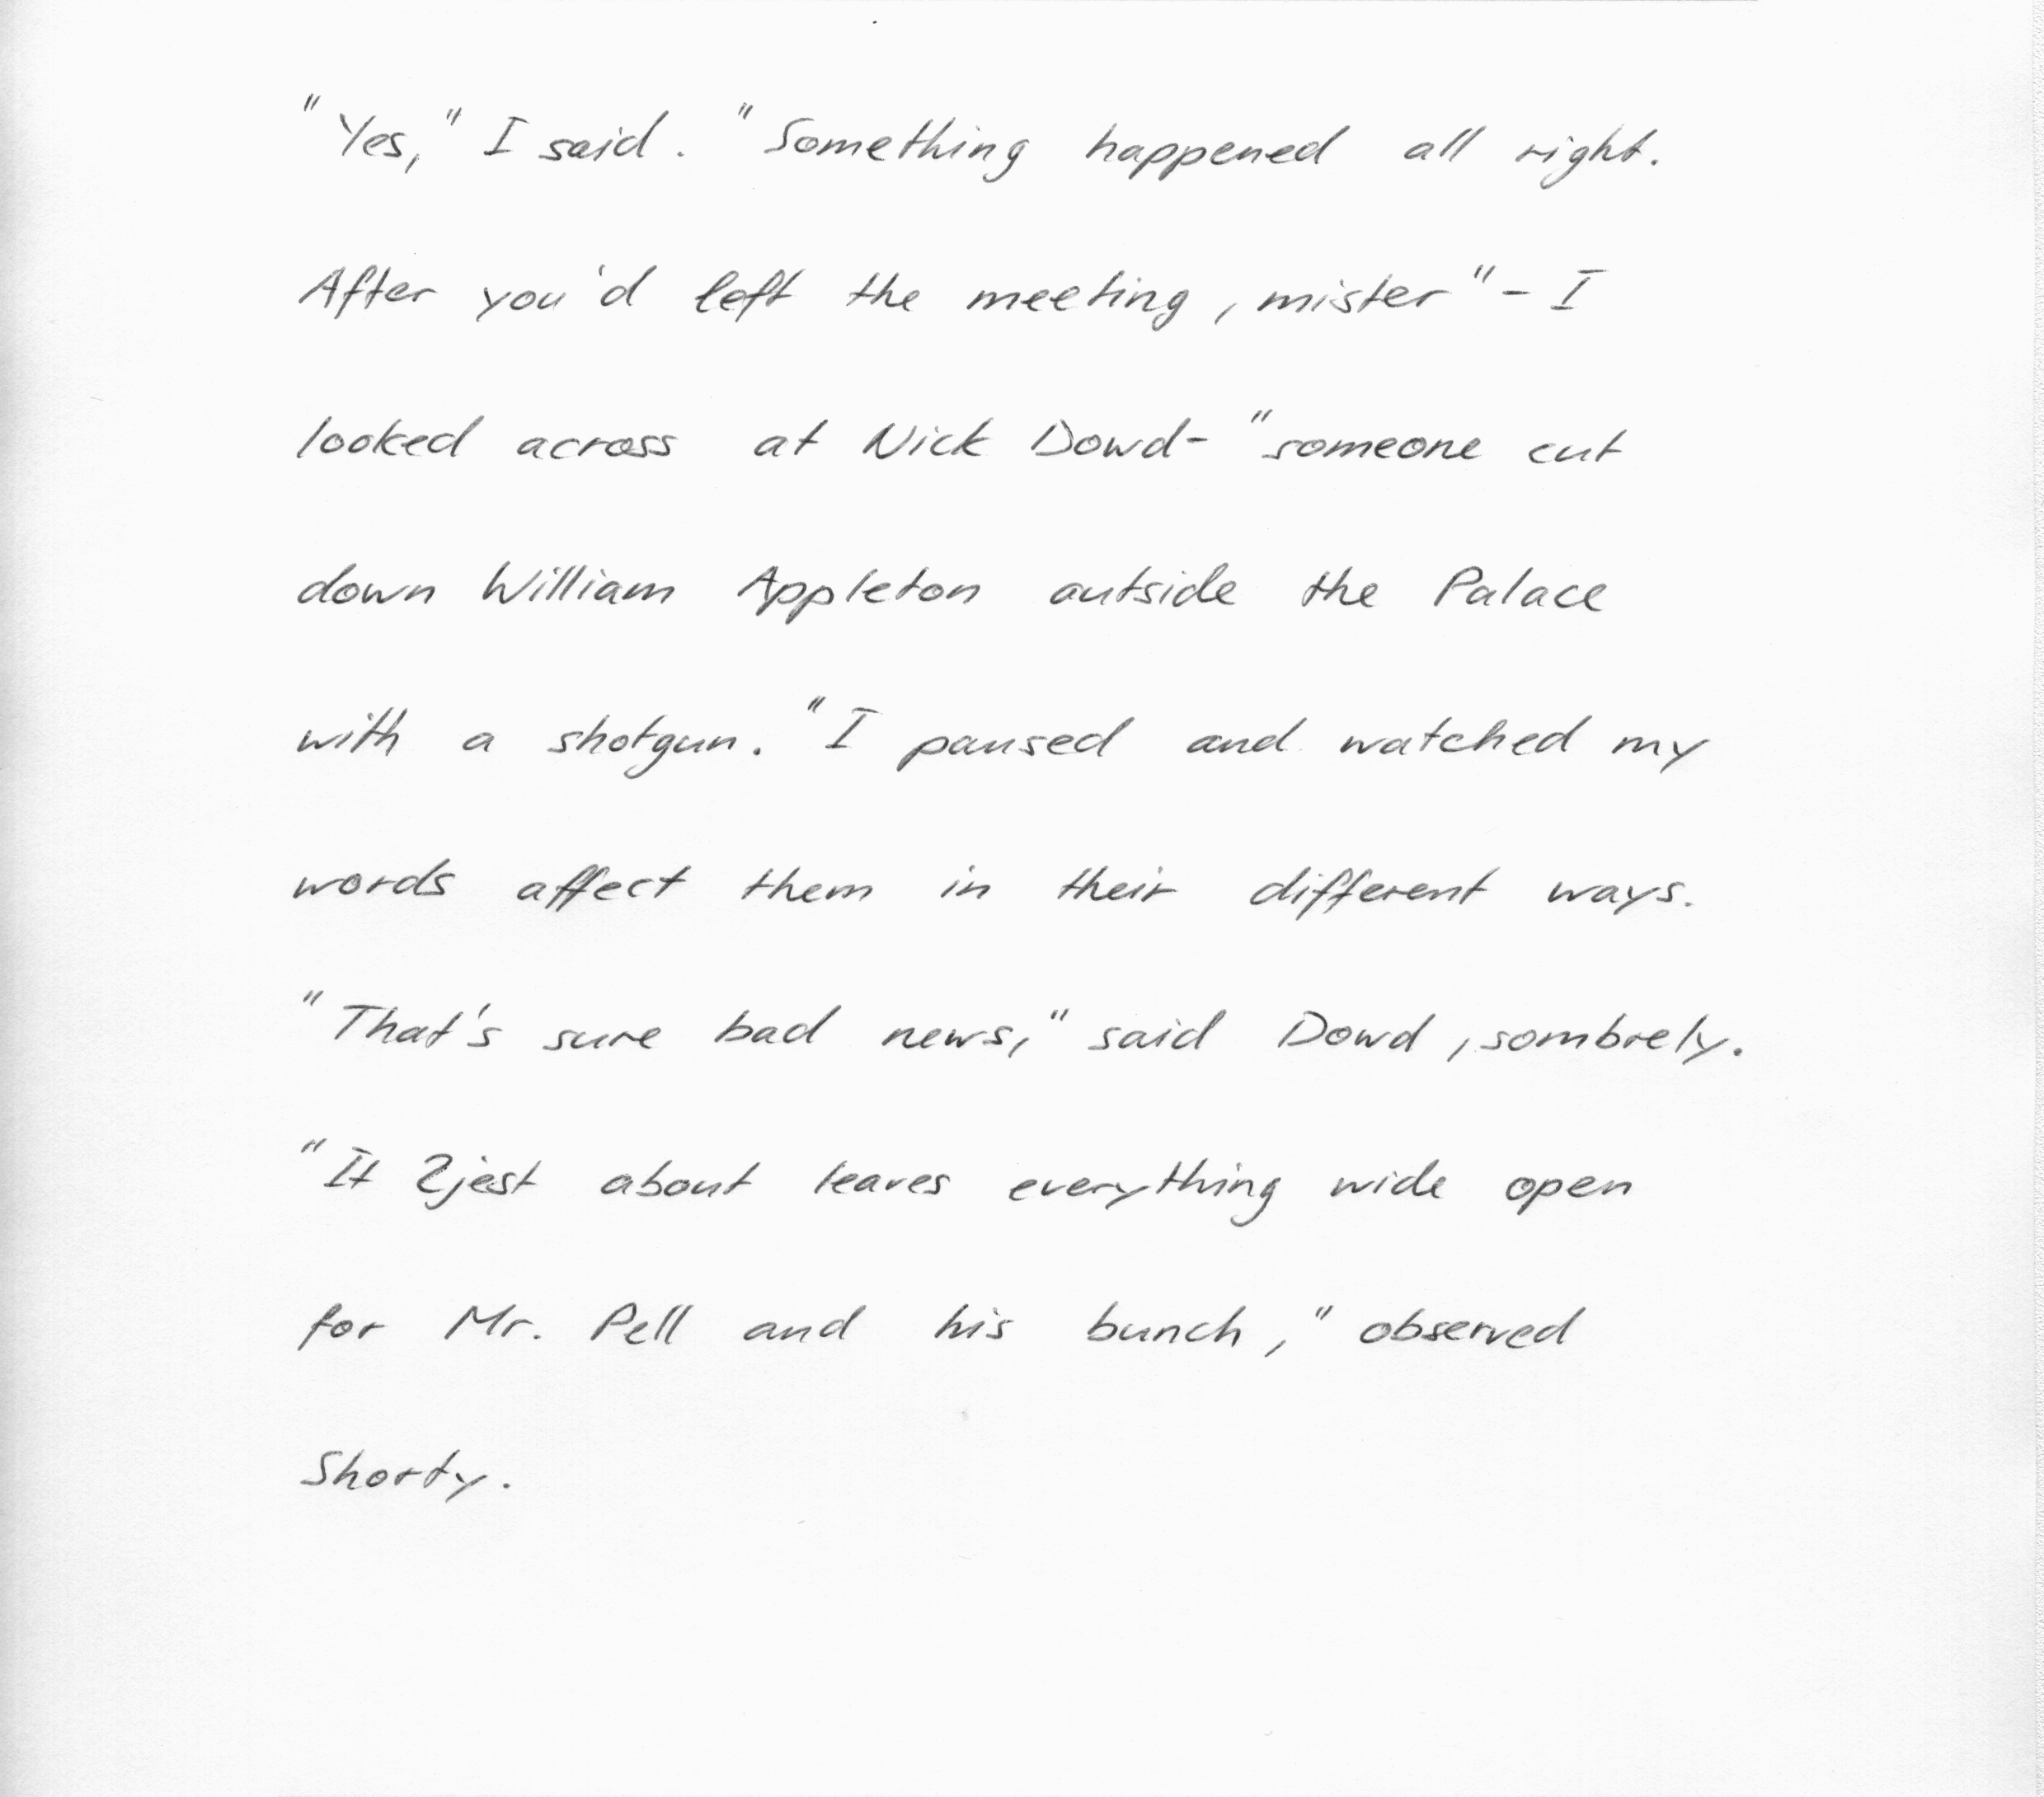 "Yes," I said. "Something happened all right.
After you'd left the meeting, mister" - I
looked across at Nick Dowd - "someone cut
down William Appleton outside the Palace
with a shotgun." I paused and watched my
words affect them in their different ways.
"That's sure bad news," said Dowd, sombrely.
"It 2jest about leaves everything wide open
for Mr. Pell and his bunch," observed
Shorty.